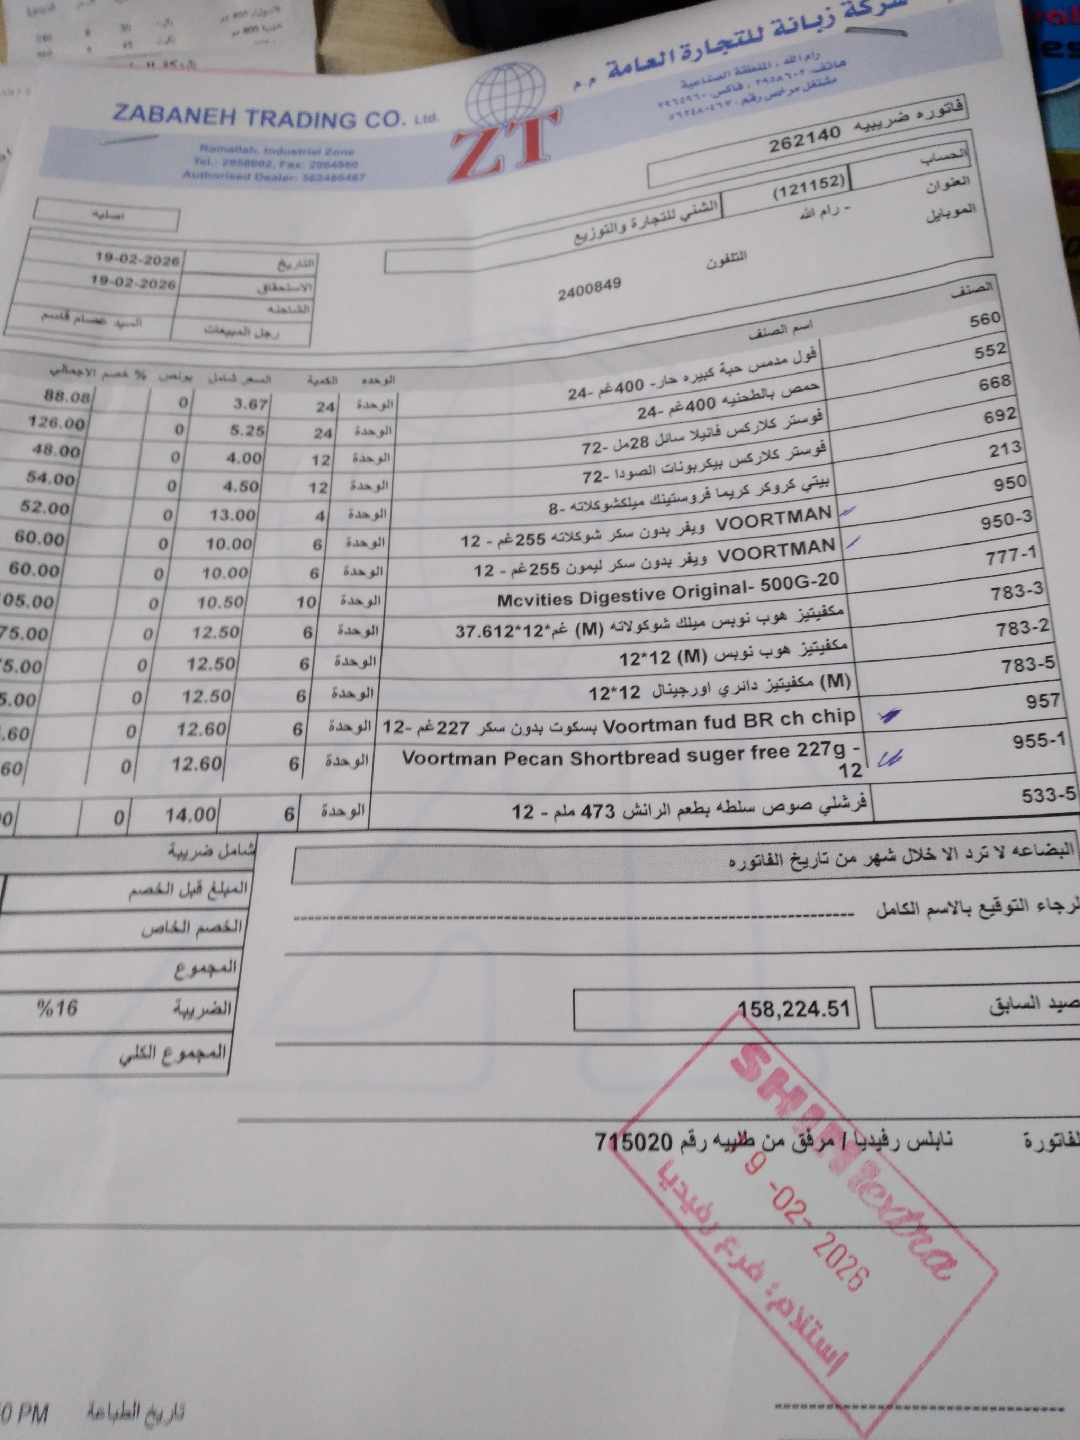 شركة زبانة للتجارة العامة م.م
رام الله ، المنطقة الصناعية
هاتف: ٢٩٥٨٦٠٢ ، فاكس: ٢٩٦٤٩٦٠
مشتغل مرخص رقم:
ZABANEH TRADING CO. Ltd.
Ramallah, Industrial Zone
Tel.: 2958602, Fax: 2964960
Authorised Dealer: 562480467
ZT
فاتوره ضريبيه 262140
الحساب (121152) الشني للتجارة والتوزيع
العنوان - رام الله
الموبايل التلفون 2400849
اصليه
التاريخ 19-02-2026
الاستحقاق 19-02-2026
الشاحنه
رجل المبيعات السيد عصام قاسم
الصنف اسم الصنف الوحده الكمية السعر شامل بونص % خصم الاجمالي
560 فول مدمس حبة كبيره حار- 400غم -24 الوحدة 24 3.67 0 88.08
552 حمص بالطحنيه 400غم -24 الوحدة 24 5.25 0 126.00
668 فوستر كلاركس فانيلا سائل 28مل -72 الوحدة 12 4.00 0 48.00
692 فوستر كلاركس بيكربونات الصودا -72 الوحدة 12 4.50 0 54.00
213 بيتي كروكر كريما فروستينك ميلكشوكلاته -8 الوحدة 4 13.00 0 52.00
950 VOORTMAN ويفر بدون سكر شوكلاته 255غم - 12 الوحدة 6 10.00 0 60.00
950-3 VOORTMAN ويفر بدون سكر ليمون 255غم - 12 الوحدة 6 10.00 0 60.00
777-1 Mcvities Digestive Original- 500G-20 الوحدة 10 10.50 0 05.00
783-3 مكفيتيز هوب نوبس ميلك شوكولاته (M) غم*12*37.612 الوحدة 6 12.50 0 75.00
783-2 مكفيتيز هوب نوبس (M) 12*12 الوحدة 6 12.50 0 5.00
783-5 (M) مكفيتيز دائري اورجينال 12*12 الوحدة 6 12.50 0 5.00
957 Voortman fud BR ch chip بسكوت بدون سكر 227غم -12 الوحدة 6 12.60 0 .60
955-1 Voortman Pecan Shortbread suger free 227g - 12 الوحدة 6 12.60 0 60
533-5 فرشلي صوص سلطه بطعم الرانش 473 ملم - 12 الوحدة 6 14.00 0 00
البضاعه لا ترد الا خلال شهر من تاريخ الفاتوره
لرجاء التوقيع بالاسم الكامل
شامل ضريبة
المبلغ قبل الخصم
الخصم الخاص
المجموع
الضريبة 16%
المجموع الكلي
صيد السابق 158,224.51
لفاتورة نابلس رفيديا / مرفق من طلبيه رقم 715020
SHINI extra
9 -02- 2026
إستلام: فرع رفيديا
تاريخ الطباعة 0 PM